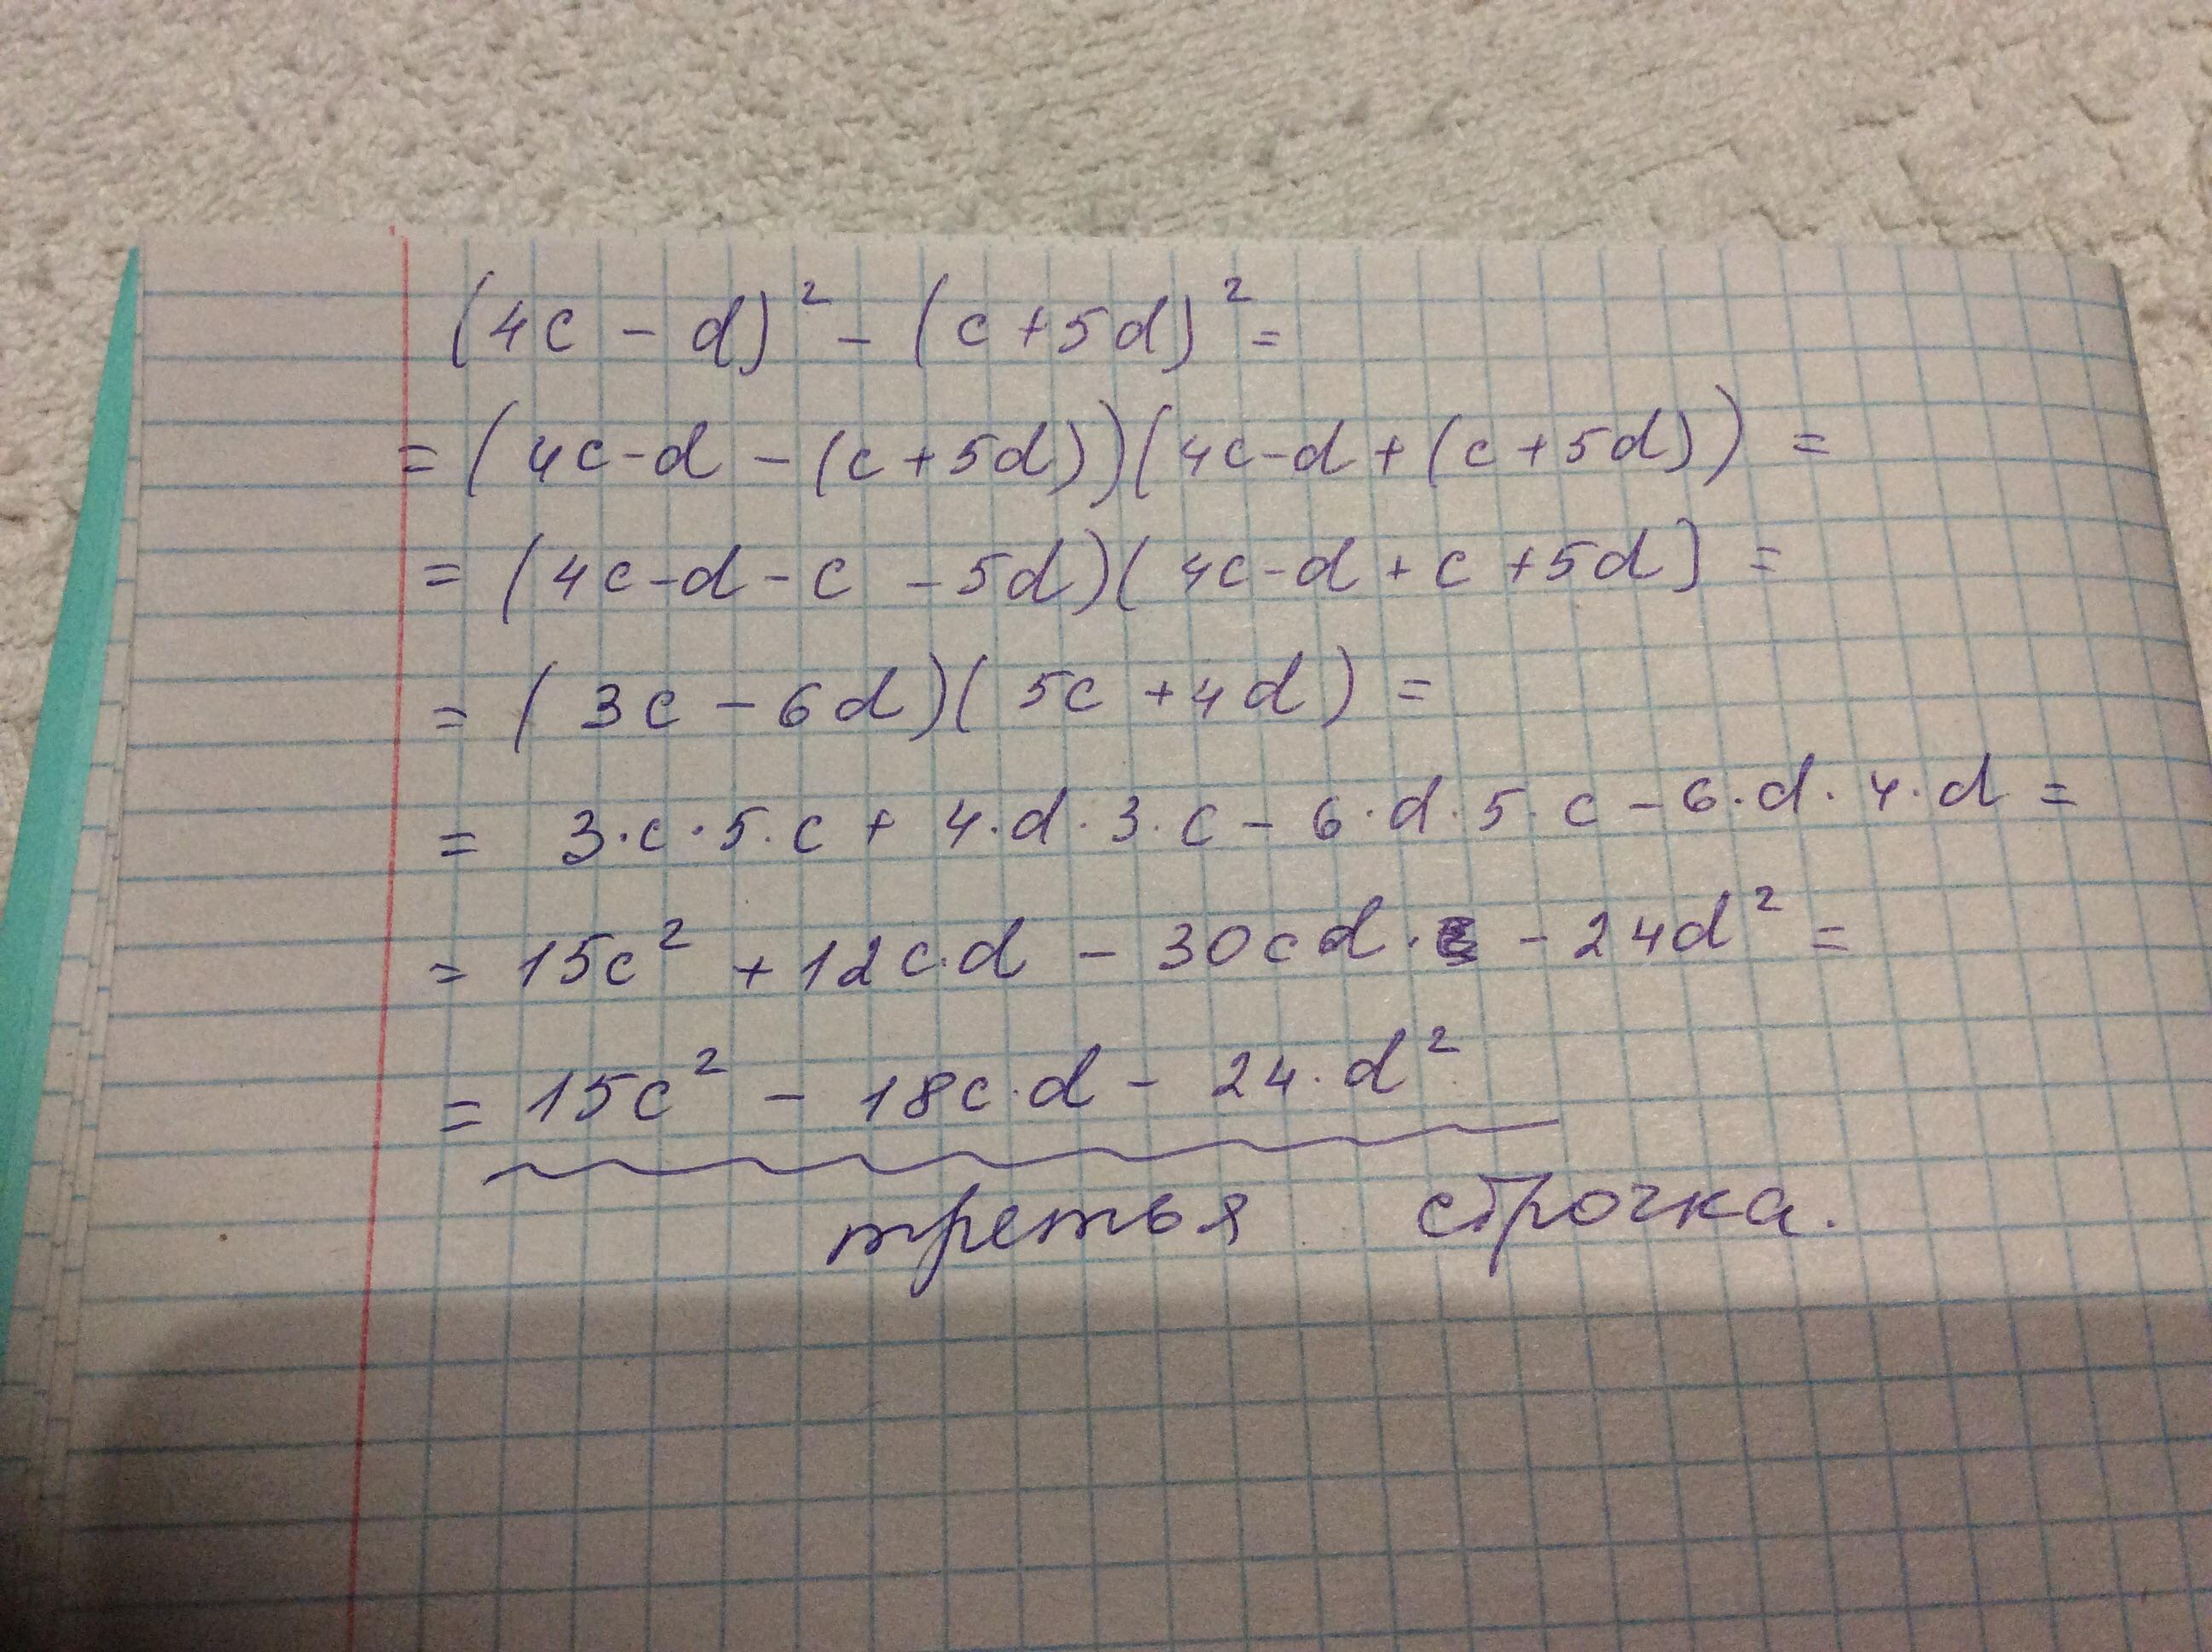 (4c - d)² - (c + 5d)² =
= (4c - d - (c + 5d))(4c - d + (c + 5d)) =
= (4c - d - c - 5d)(4c - d + c + 5d) =
= (3c - 6d)(5c + 4d) =
= 3·c·5·c + 4·d·3·c - 6·d·5·c - 6·d·4·d =
= 15c² + 12c·d - 30cd· - 24d² =
= 15c² - 18c·d - 24·d²
третья строчка.